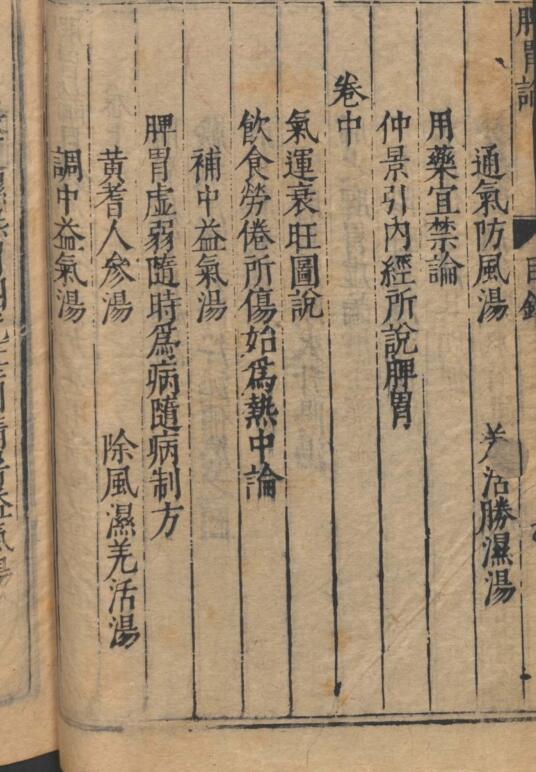 脾胃論
目錄
通氣防風湯 羌活勝濕湯
用藥宜禁論
仲景引內經所說脾胃
卷中
氣運衰旺圖說
飲食勞倦所傷始爲熱中論
補中益氣湯
脾胃虛弱隨時爲病隨病制方
黃耆人參湯 除風濕羌活湯
調中益氣湯